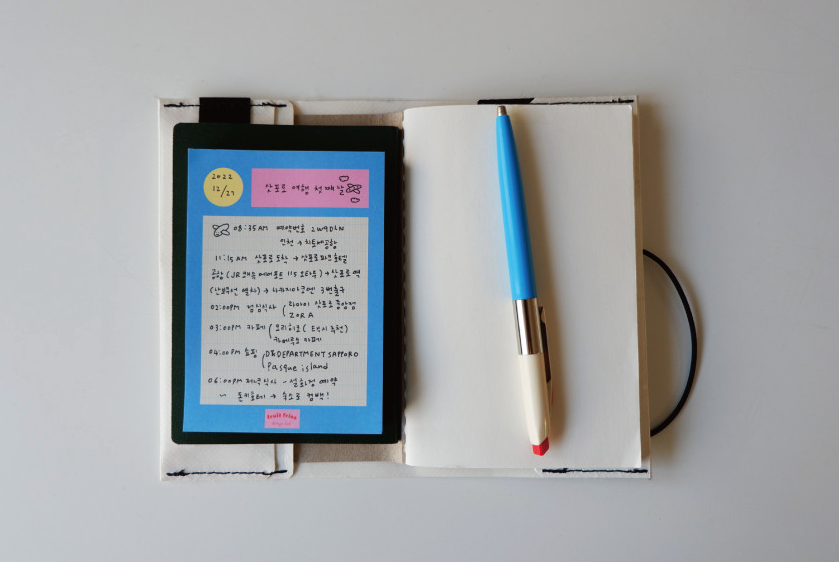 2022
12/27
삿포로 여행 첫째날
08:35AM 예약번호 2W9DLN
인천 → 치토세공항
11:15AM 삿포로 도착 → 삿포로파크호텔
공항 (JR 쾌속 에어포트 115 오타루) → 삿포로역
(난보쿠선 열차) → 나카지마공엔 3번출구
02:00PM 점심식사 라마이 삿포로 중앙점
ZORA
03:00PM 카페 모리히코 (택시 추천)
카페
04:00PM 쇼핑 D&DEPARTMENT SAPPORO
Pasque island
06:00PM 저녁식사 - 예약
돈키호테 → 숙소로 컴백!